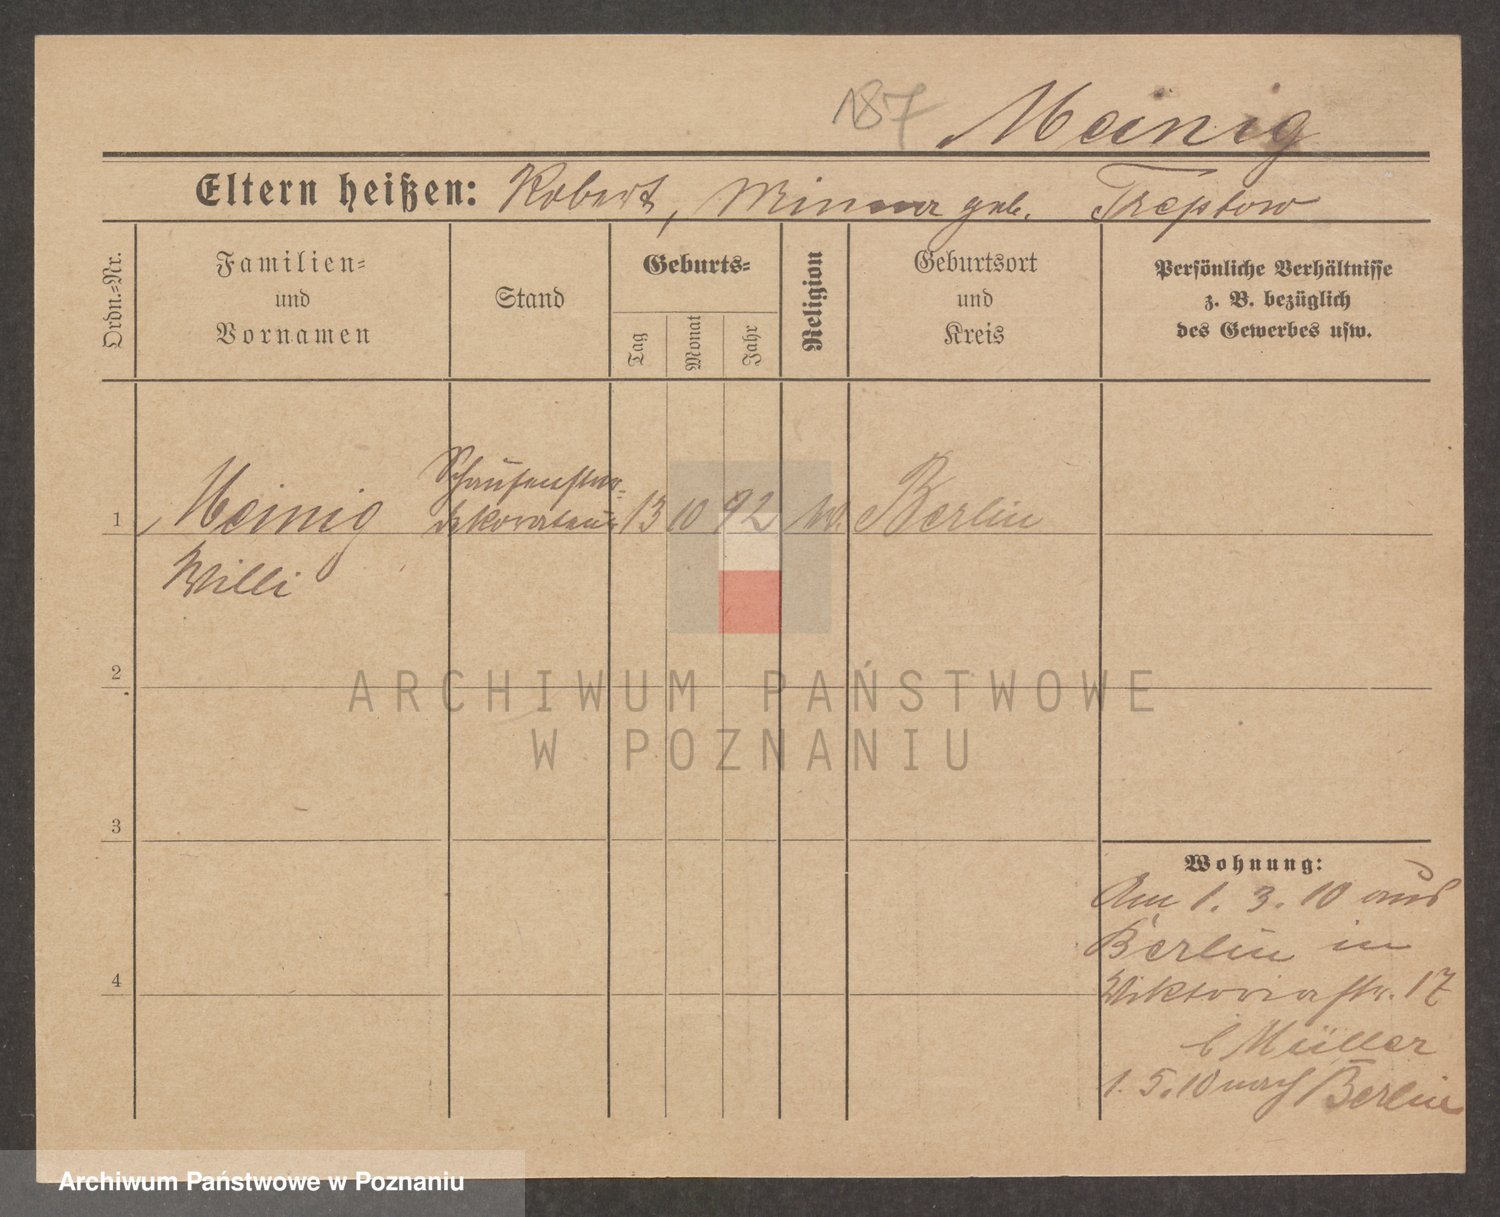 187 Meinig
Eltern heißen: Robert, Minna geb. Treptow
Ordn.-Nr.
Familien-
und
Vornamen
Stand
Geburts-
Tag
Monat
Jahr
Religion
Geburtsort
und
Kreis
Persönliche Verhältnisse
z. B. bezüglich
des Gewerbes usw.
1 Meinig Schaufenster- 13 10 92 Berlin
dekorateur
Willi
2
ARCHIWUM PAŃSTWOWE
W POZNANIU
3
Wohnung:
Am 1. 3. 10 aus
Berlin in
4
Viktoriastr. 17
b Müller
1. 5. 10 nach Berlin
Archiwum Państwowe w Poznaniu